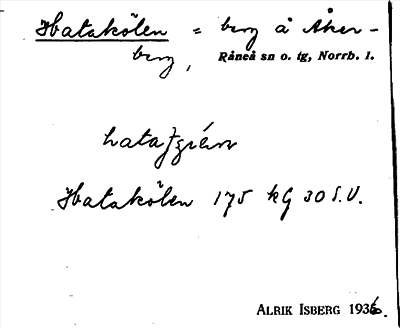 Hatakölen = berg å Åker-
berg, Råneå sn o. tg, Norrb. l.
Hatakölen 175 kG 30 S.V.
ALRIK ISBERG 1936.